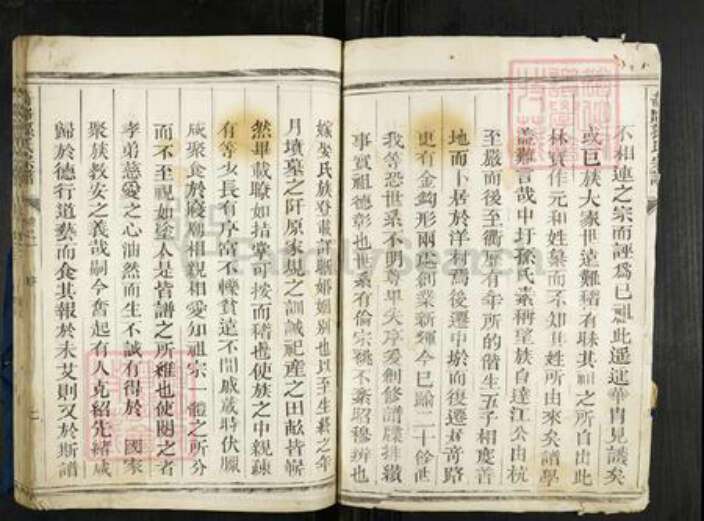 不相連之宗而誣爲已祖此遥遥華胄見譏矣
或巨族大家世遠難稽有昧其祖之所自出此
林寶作元和姓纂而不知其姓所由來矣譜學
蓋難言哉中圩徐氏素稱望族自達江公由杭
至嚴而後至衢
有年所的偕生五子相度善
地而卜居於洋村爲後遷中圩而復遷
路
更有金鈎形兩
創業新輝今已踰二十餘世
我等恐世系不明尊卑失序爰創修譜牒排纘
事實祖德彰也世系有倫宗祧不紊昭穆辨也
嫁娶氏族登載詳
婚姻别也以至生終之年
月墳墓之阡原家規之訓誡祀產之田畝皆嶄
然畢載瞭如指掌可按而稽也使族之中親疎
有等少長有序富不轢貧遠不間戚歲時伏臘
咸聚食於寢廟相親相愛知祖宗一體之所分
而不至視如途人是皆譜之所維也使閱之者
孝弟慈愛之心油然而生不誠有得於 國家
聚族教安之義哉嗣今奮起有人克紹先緒咸
歸於德行道藝而食其報於未艾則又於斯譜